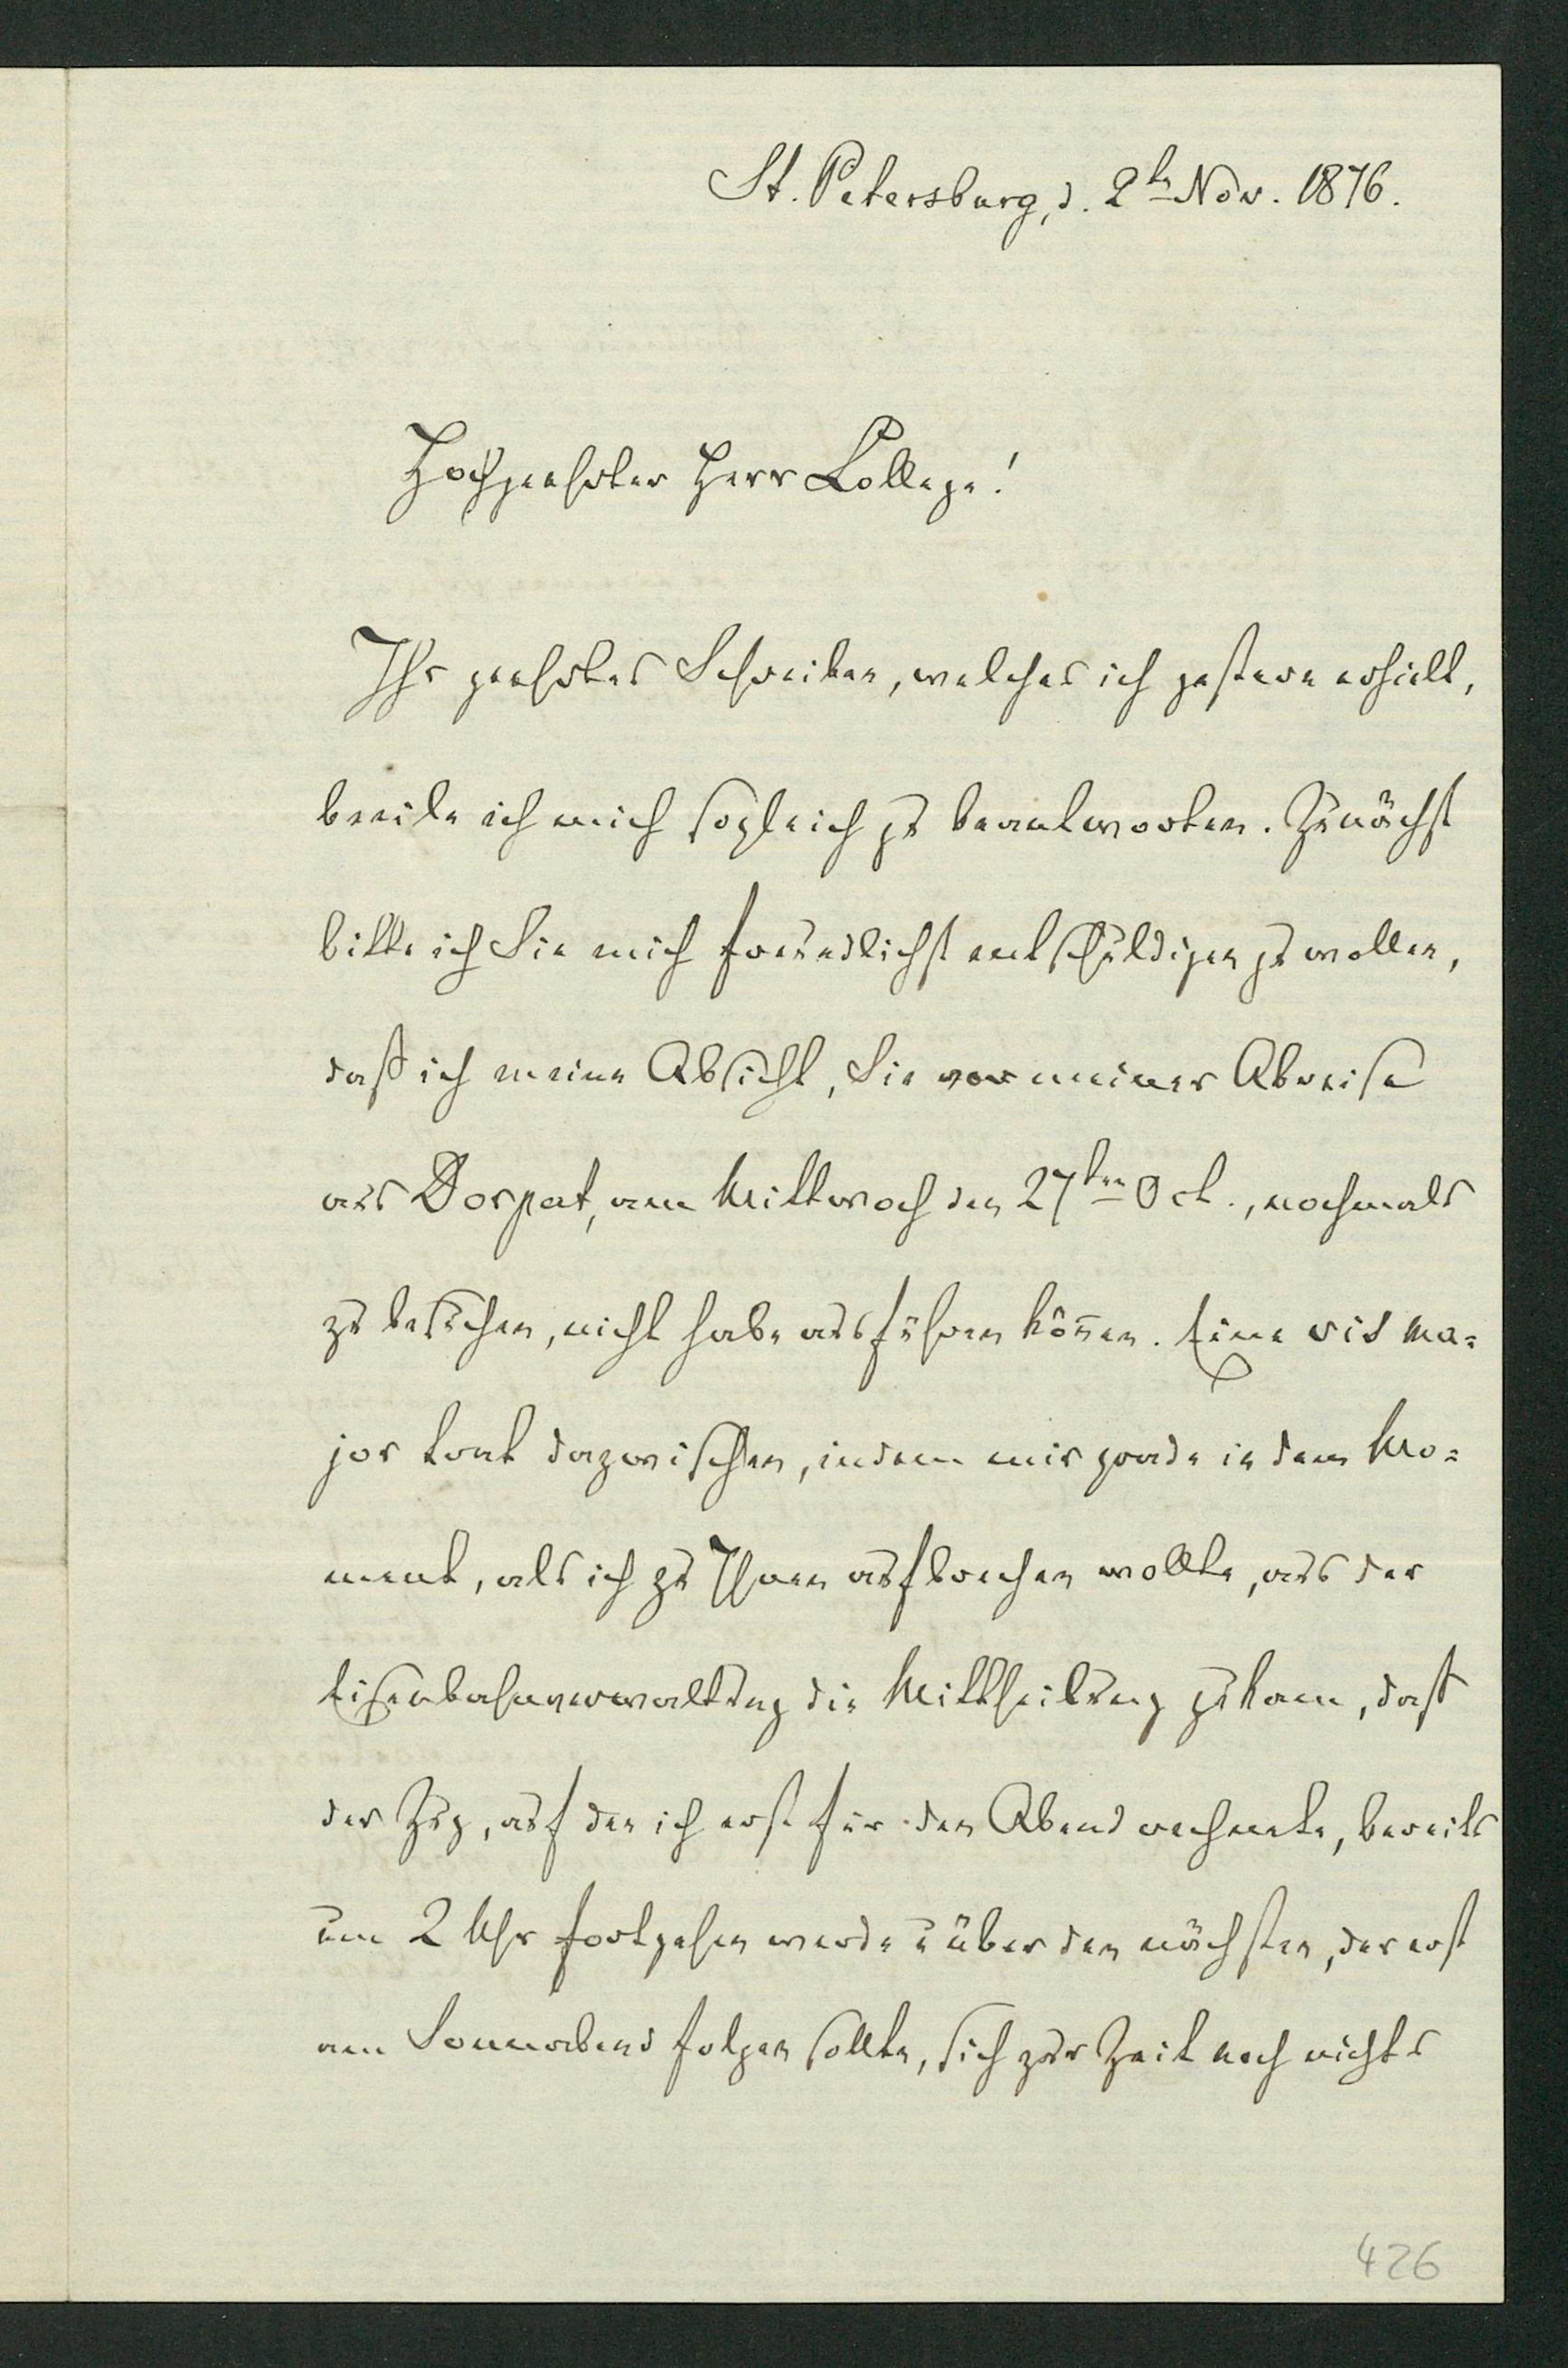 St. Petersburg, d. 2ten Nov. 1876.
Hochgeehrter Herr College!
Ihr geehrtes Schreiben, welches ich gestern erhielt,
beeile ich mich sogleich zu beantworten. Zunächst
bitte ich Sie mich freundlichst entschuldigen zu wollen,
daß ich meine Absicht, Sie vor meiner Abreise
aus Dorpat, am Mittwoch den 27ten Oct., nochmals
zu besuchen, nicht habe ausführen können. Eine vis ma=
jor trat dazwischen, indem mir grade in dem Mo=
ment, als ich zu Ihnen aufbrechen wollte, aus der
Eisenbahnverwaltung die Mittheilung zukam, daß
der Zug, auf den ich erst für den Abend rechnete, bereits
um 2 Uhr fortgehen werde u über den nächsten, der erst
am Sonnabend folgen sollte, sich zur Zeit noch nichts
426